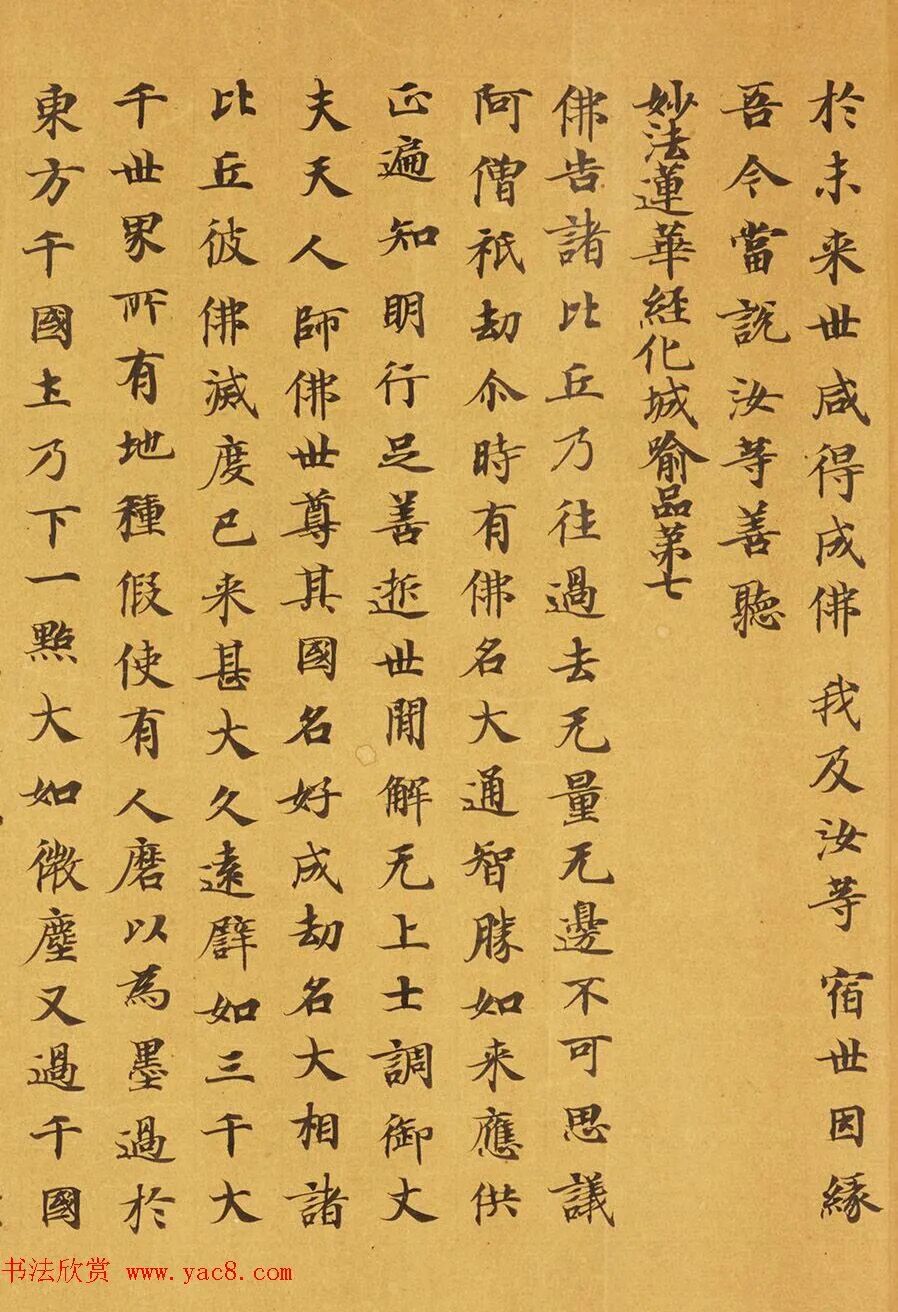 於未来世咸得成佛 我及汝等 宿世因緣
吾今當説汝等善聽
妙法蓮華経化城喻品第七
佛告諸比丘乃往過去无量无邊不可思議
阿僧祇劫尒時有佛名大通智勝如来應供
正遍知明行足善逝世間解无上士調御丈
夫天人師佛世尊其國名好成劫名大相諸
比丘彼佛滅度已来甚大久遠譬如三千大
千世界所有地種假使有人磨以為墨過於
東方千國土乃下一點大如微塵又過千國
书法欣赏 www.yac8.com